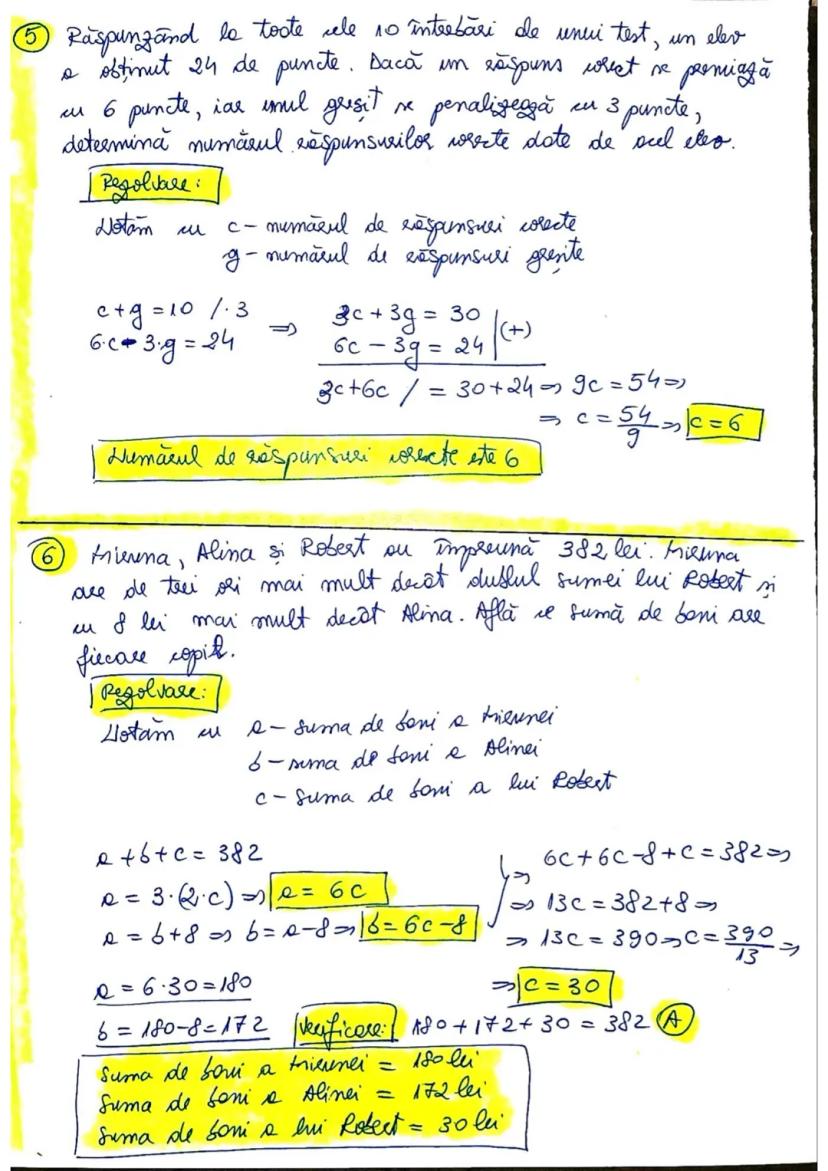 5 Răspunzând la toate cele 10 întrebări ale unui test, un elev
a obținut 24 de puncte. Dacă un răspuns corect se premiază
cu 6 puncte, iar unul greșit se penalizează cu 3 puncte,
determină numărul răspunsurilor corecte date de acel elev.
Rezolvare:
Notăm cu c - numărul de răspunsuri corecte
g - numărul de răspunsuri greșite
c + g = 10 / · 3
6·c - 3·g = 24
⇒
3c + 3g = 30
6c - 3g = 24 | (+)
3c + 6c / = 30 + 24 ⇒ 9c = 54 ⇒
⇒ c = 54/9 ⇒ c = 6
Numărul de răspunsuri corecte este 6
6 Mieruna, Alina și Robert au împreună 382 lei. Mieruna
are de trei ori mai mult decât dublul sumei lui Robert și
cu 8 lei mai mult decât Alina. Află ce sumă de bani are
fiecare copil.
Rezolvare:
Notăm cu a - suma de bani a Mierunei
b - suma de bani a Alinei
c - suma de bani a lui Robert
a + b + c = 382
a = 3·(2·c) ⇒ a = 6c
a = b + 8 ⇒ b = a - 8 ⇒ b = 6c - 8
⇒ 6c + 6c - 8 + c = 382 ⇒
⇒ 13c = 382 + 8 ⇒
⇒ 13c = 390 ⇒ c = 390/13 ⇒
⇒ c = 30
a = 6·30 = 180
b = 180 - 8 = 172
Verificare: 180 + 172 + 30 = 382 A
Suma de bani a Mierunei = 180 lei
Suma de bani a Alinei = 172 lei
Suma de bani a lui Robert = 30 lei